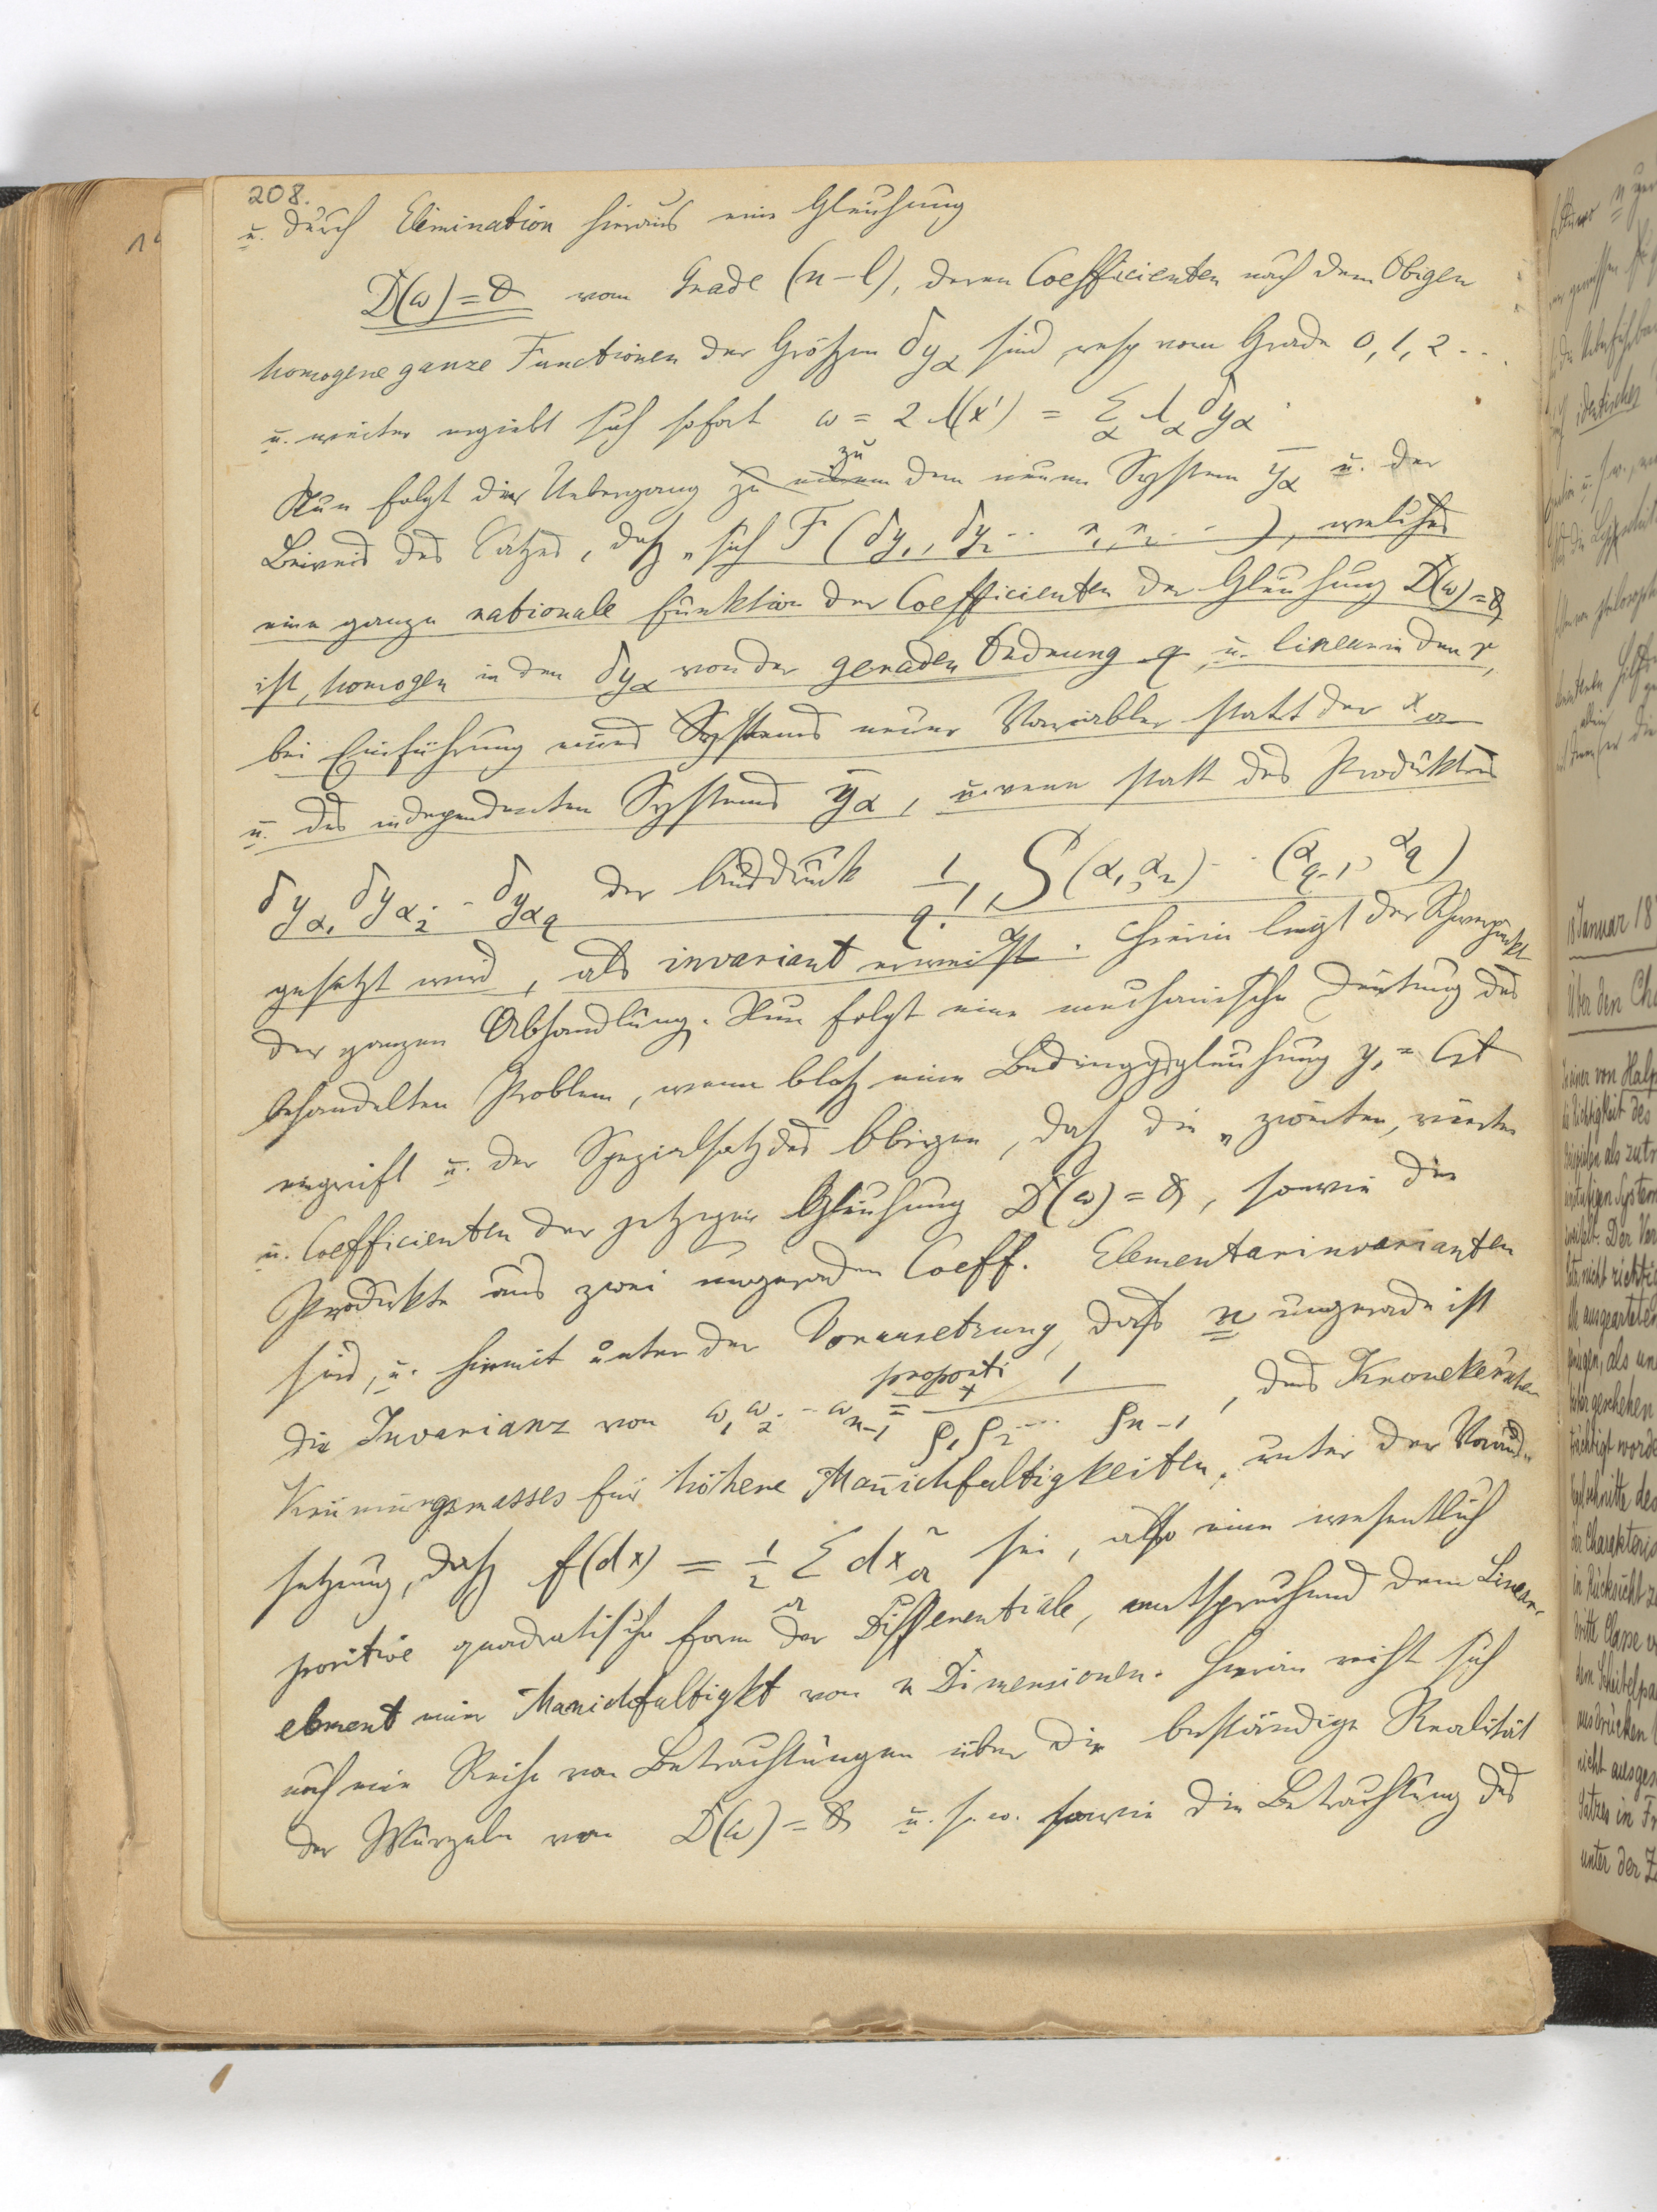 208.
u. durch Elimination hieraus eine Gleichung
D(ω) = 0 vom Grade (n-l), deren Coefficienten nach dem Obigen
homogene ganze Functionen der Größen δyα sind, resp vom Grade 0, 1, 2 ...
u. weiter ergiebt sich sofort ω = 2 Λ(x') = Σα λα δyα.
Nun folgt der Uebergang zu dem neuen System y̅α u. der
Beweis des Satzes, daß „sich F (δy1, δy2 ... r1, r2 ... ), welches
eine ganze rationale Funktion der Coefficienten der Gleichung D(ω) = 0
ist, homogen in den δyα von der geraden Ordnung q u. linear in den r,
bei Einführung eines Systems neuer Variabler statt der xa
u. des independenten Systems y̅α, u. wenn statt des Produktes
δyα1 δyα2 ... δyαq der Ausdruck 1/q! S (α1, α2) ... (αq-1, αq)
gesetzt wird, als invariant erweist. Hierin liegt der Schwerpunkt
der ganzen Abhandlung. Nun folgt eine mechanische Deutung des
behandelten Problem, wenn bloß eine Bedingggleichung y1 = Cst
eingreift u. der Spezialsatz des Obigen, daß die „zweiten, vierten
u. Coefficienten der jetzigen Gleichung D(ω) = 0, sowie die
Produkte aus zwei ungeraden Coeff. Elementarinvarianten
sind, u. hiermit unter der Voraussetzung, dass n ungerade ist
die Invarianz von ω1 ω2 ... ωn-1 = proporti 1 / ρ1 ρ2 ... ρn-1, des Kronekerschen
Krümungsmasses für höhere Manichfaltigkeiten, unter der Voraus-
setzung, daß f(dx) = 1/2 Σa dxa² sei, also eine wesentlich
positive quadratische Form der Differentiale, entsprechend dem Linear-
element einer Manichfaltigkt von n Dimensionen. Hieran reiht sich
noch eine Reihe von Betrachtungen über die beständige Realität
der Wurzeln von D(ω) = 0 u. s. w. sowie die Betrachtung des